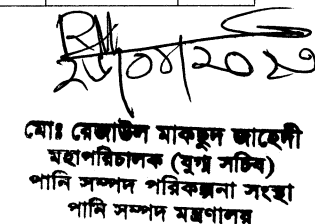 ২৮/০৪/২০২৩
মোঃ রেজাউল মাকছুদ জাহেদী
মহাপরিচালক (যুগ্ম সচিব)
পানি সম্পদ পরিকল্পনা সংস্থা
পানি সম্পদ মন্ত্রণালয়